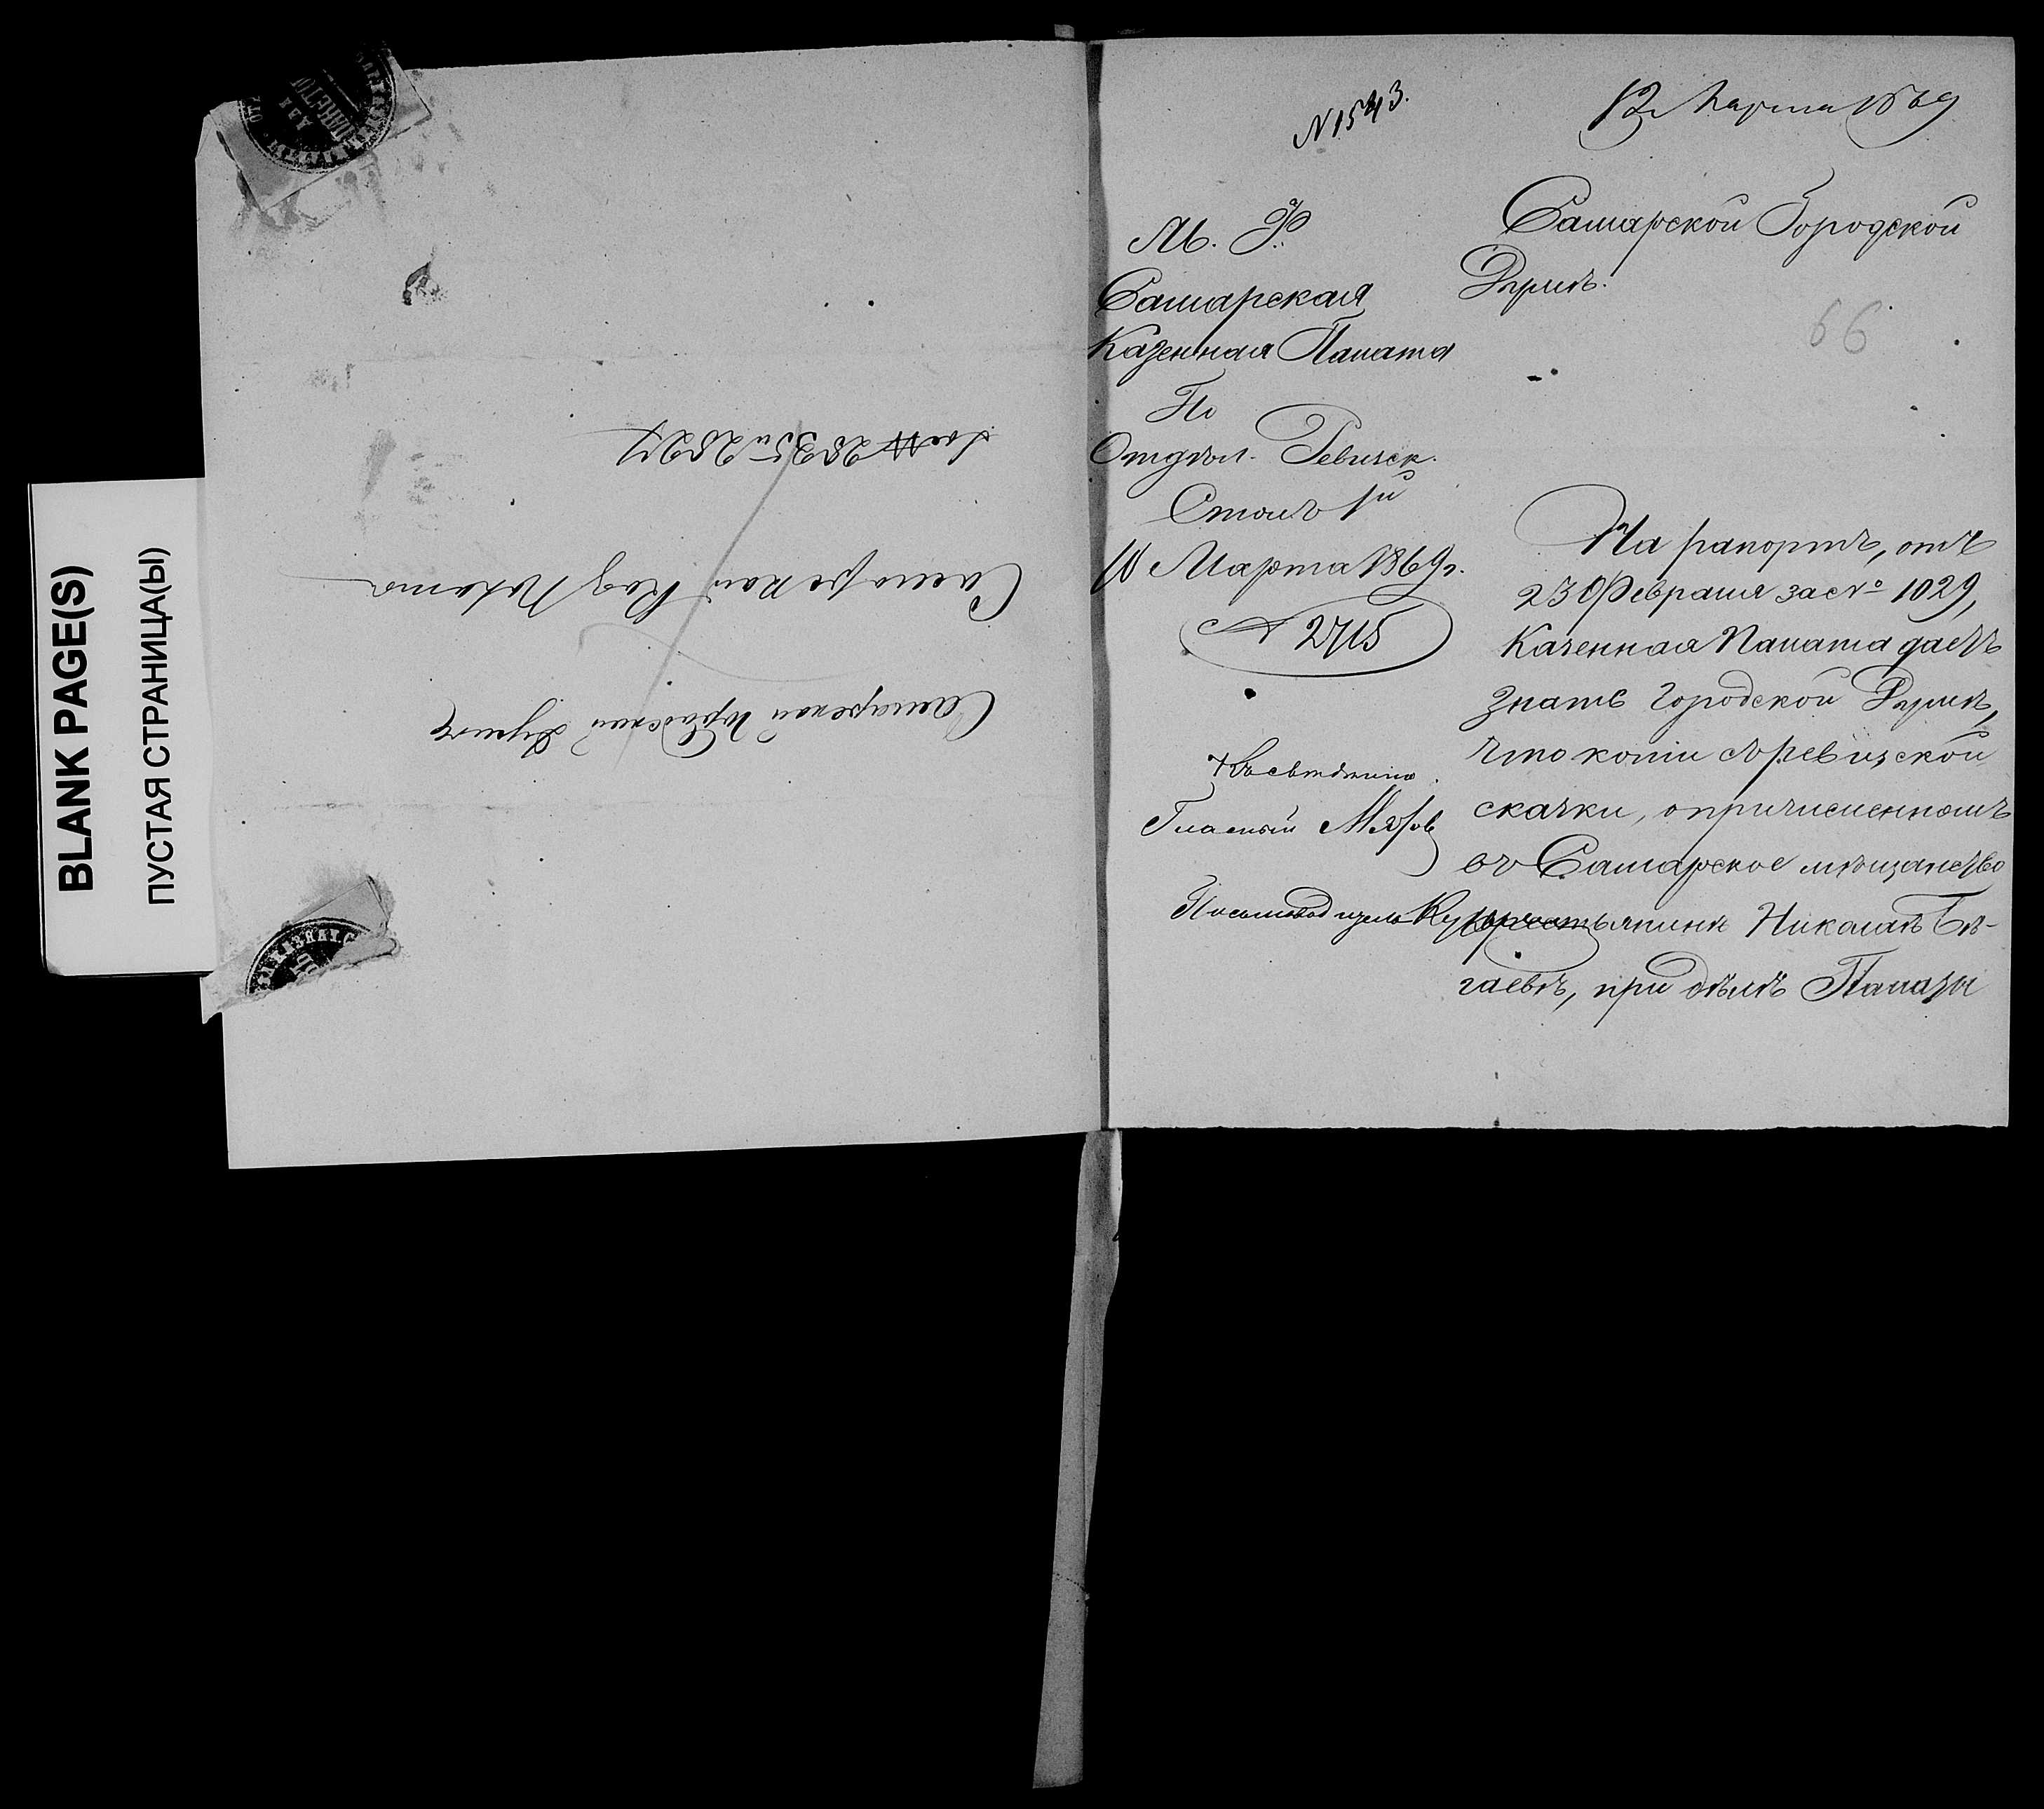 BLANK PAGE(S)
ПУСТАЯ СТРАНИЦА(Ы)
Самарской Городской Думѣ
Самарской Каз Палаты
N 1543.
12 Марта 1869
М. Ф.
Самарская
Казенная Палата
По
Отдѣл. Ревизск.
Столъ 1й
10 Марта 1869 г.
№ 2715
Къ свѣдѣнію.
Гласный
Самарской Городской
Думѣ.
66
На рапортъ, отъ
23 Февраля за № 1029,
Казенная Палата даетъ
знать Городской Думѣ,
что копіи съ ревизской
сказки, о причисленномъ
въ Самарское мѣщанство
крестьянинѣ Николаѣ Бѣ-
гаевѣ, при дѣлѣ Палаты